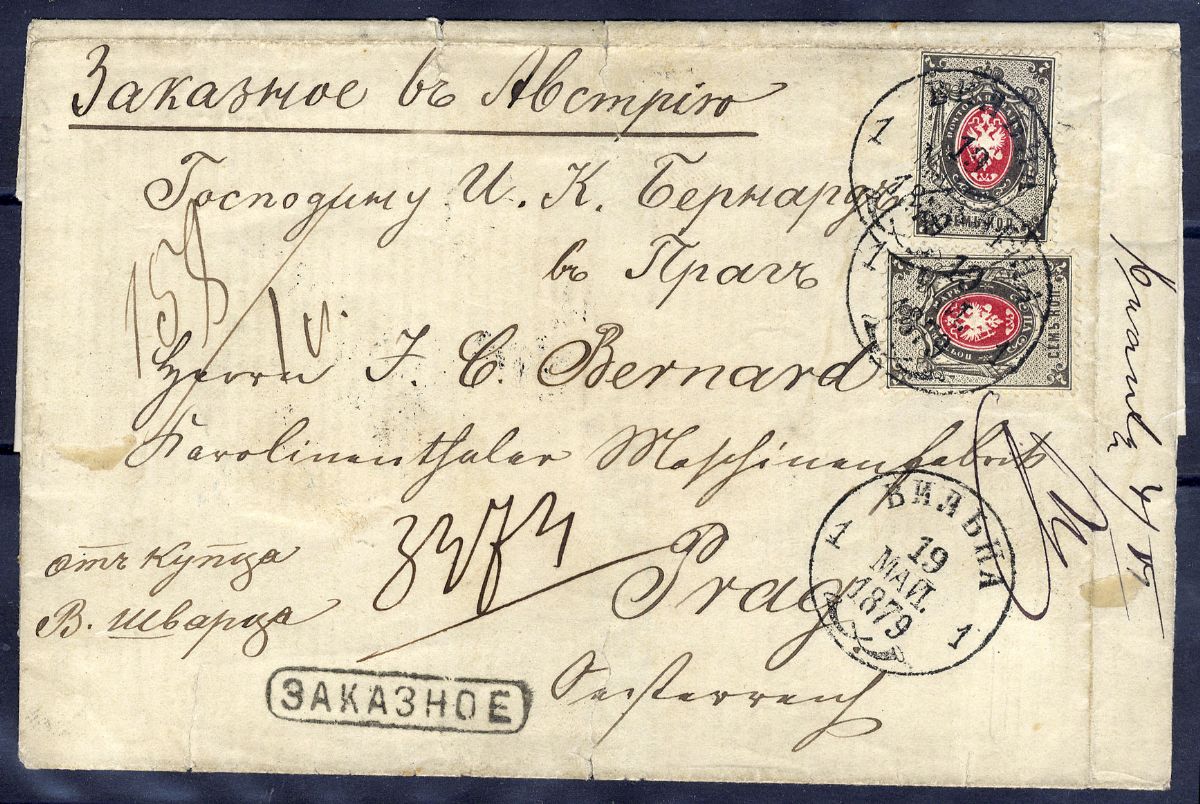 Заказное въ Австрію
Господину И. К. Бернардъ
въ Прагъ
Herrn J. C. Bernard
Karolinenthaler Maschinenfabrik
Prag
Oesterreich
отъ купца
В. Шварца
ЗАКАЗНОЕ
ВИЛЬНА
1
19
МАЙ.
1879
1
СЕМЬ КОП.